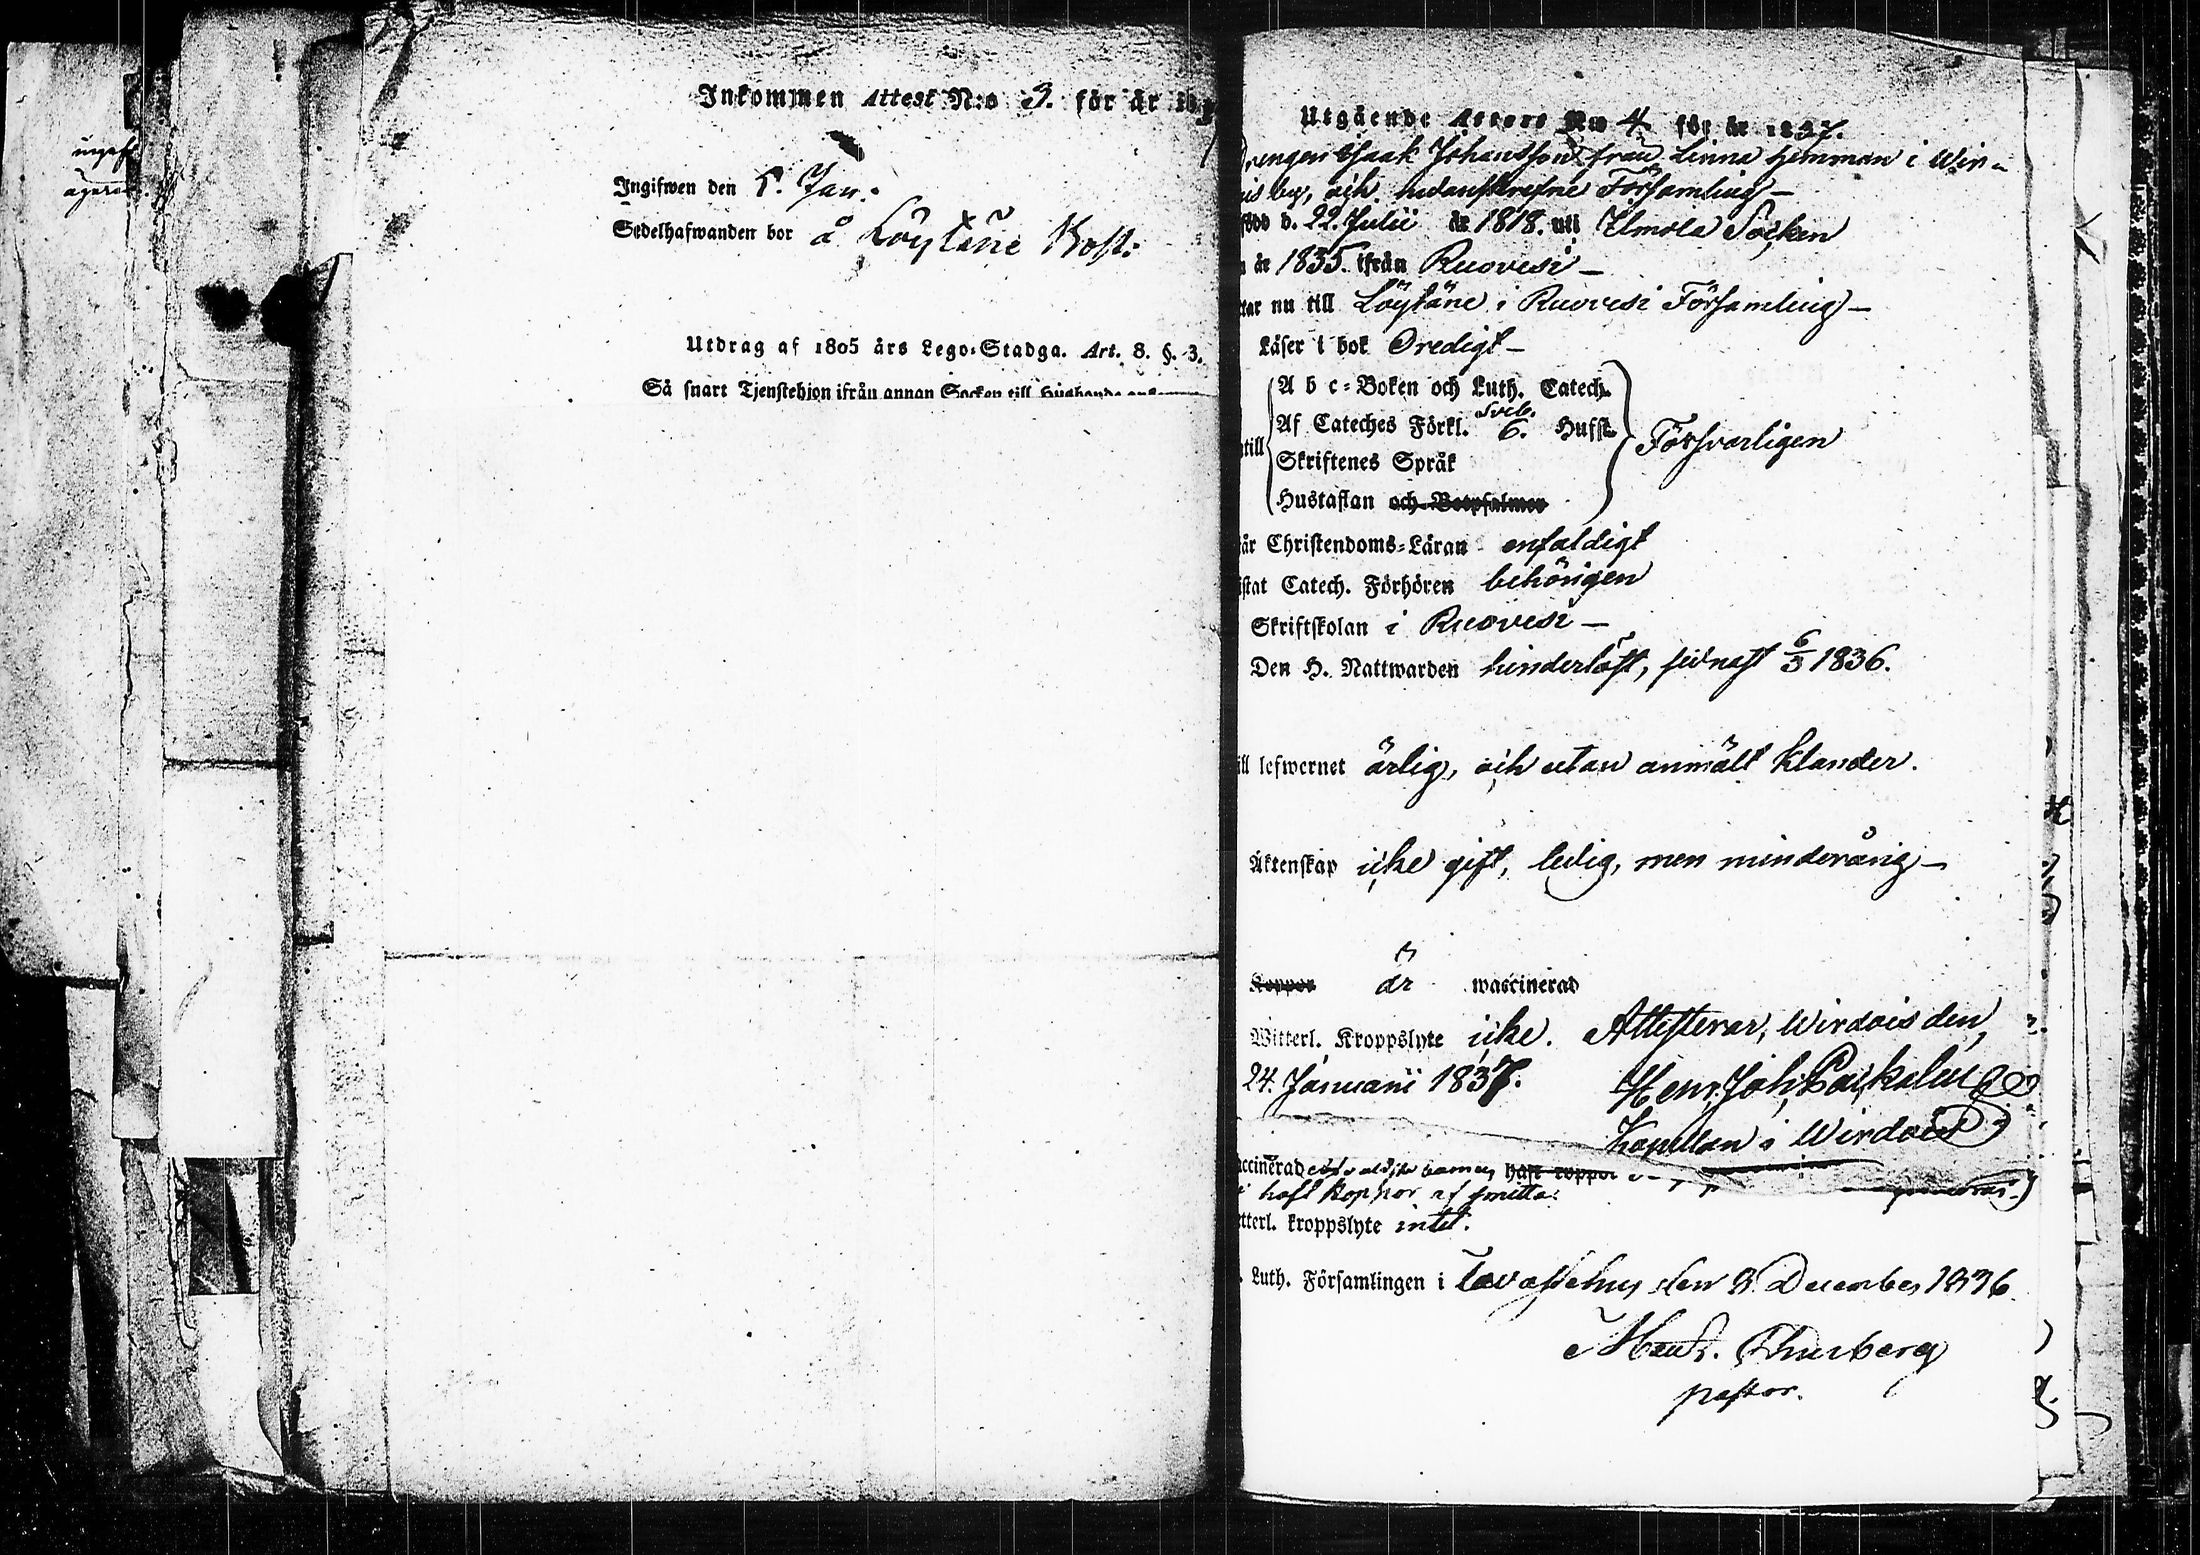 Inkommen Attest N:o 3. för år 183
Ingifwen den 5. Jan.
Sedelhafwanden bor å Löytäne Rost:
Utdrag af 1805 års Lego-Stadga. Art. 8. §. 3.
Så snart Tjenstehjon ifrån annan Socken till Husbonde
Utgående Attest N:o 4. för år 1837.
Drengen Isaak Johansson från Linna hemman i Wir-
ois by, och nedanskrefne Församling —
född d. 22. Julii år 1818. uti Ilmola Socken
år 1835. ifrån Ruovesi —
nu till Löytäne i Ruovesi Församling —
Läser i bok Oredigt —
A b c-Boken och Luth. Catech.
Af Cateches Förkl. Sveb. 6. Hufst.
till
Skriftenes Språk
Försvarligen
Hustaflan och Botpsalmer
Christendoms-Läran enfaldigt
Catech. Förhören behörigen
Skriftskolan i Ruovesi —
Den H. Nattwarden hinderlöst, sednast 6/3 1836.
till lefwernet ärlig, och utan anmält klander.
Äktenskap icke gift, ledig, men minderårig —
Koppor är waccinerad
Witterl. Kroppslyte icke. Attesterar, Wirdois den
24. Januarii 1837. Henr. Joh.
Kapellan i Wirdois
haft koppor
haft koppor af smitta.
kroppslyte intet.
Luth. Församlingen i Tavastehus den 8. December 1836
Thurberg
pastor.